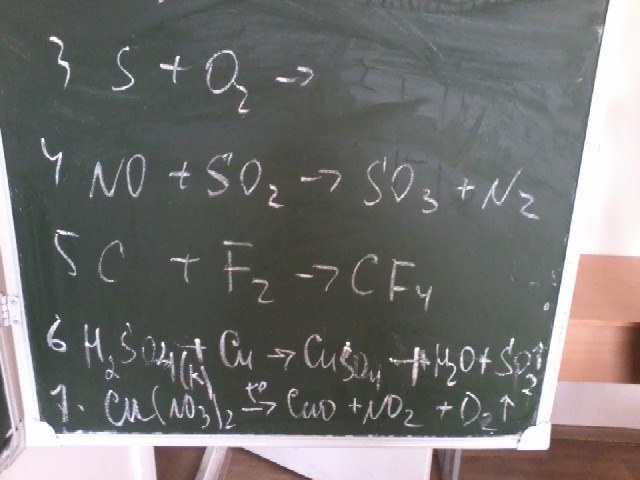 3 S + O₂ →
4 NO + SO₂ → SO₃ + N₂
5 C + F₂ → CF₄
6 H₂SO₄(к) + Cu → CuSO₄ + H₂O + SO₂↑
7. Cu(NO₃)₂ t°→ CuO + NO₂ + O₂↑